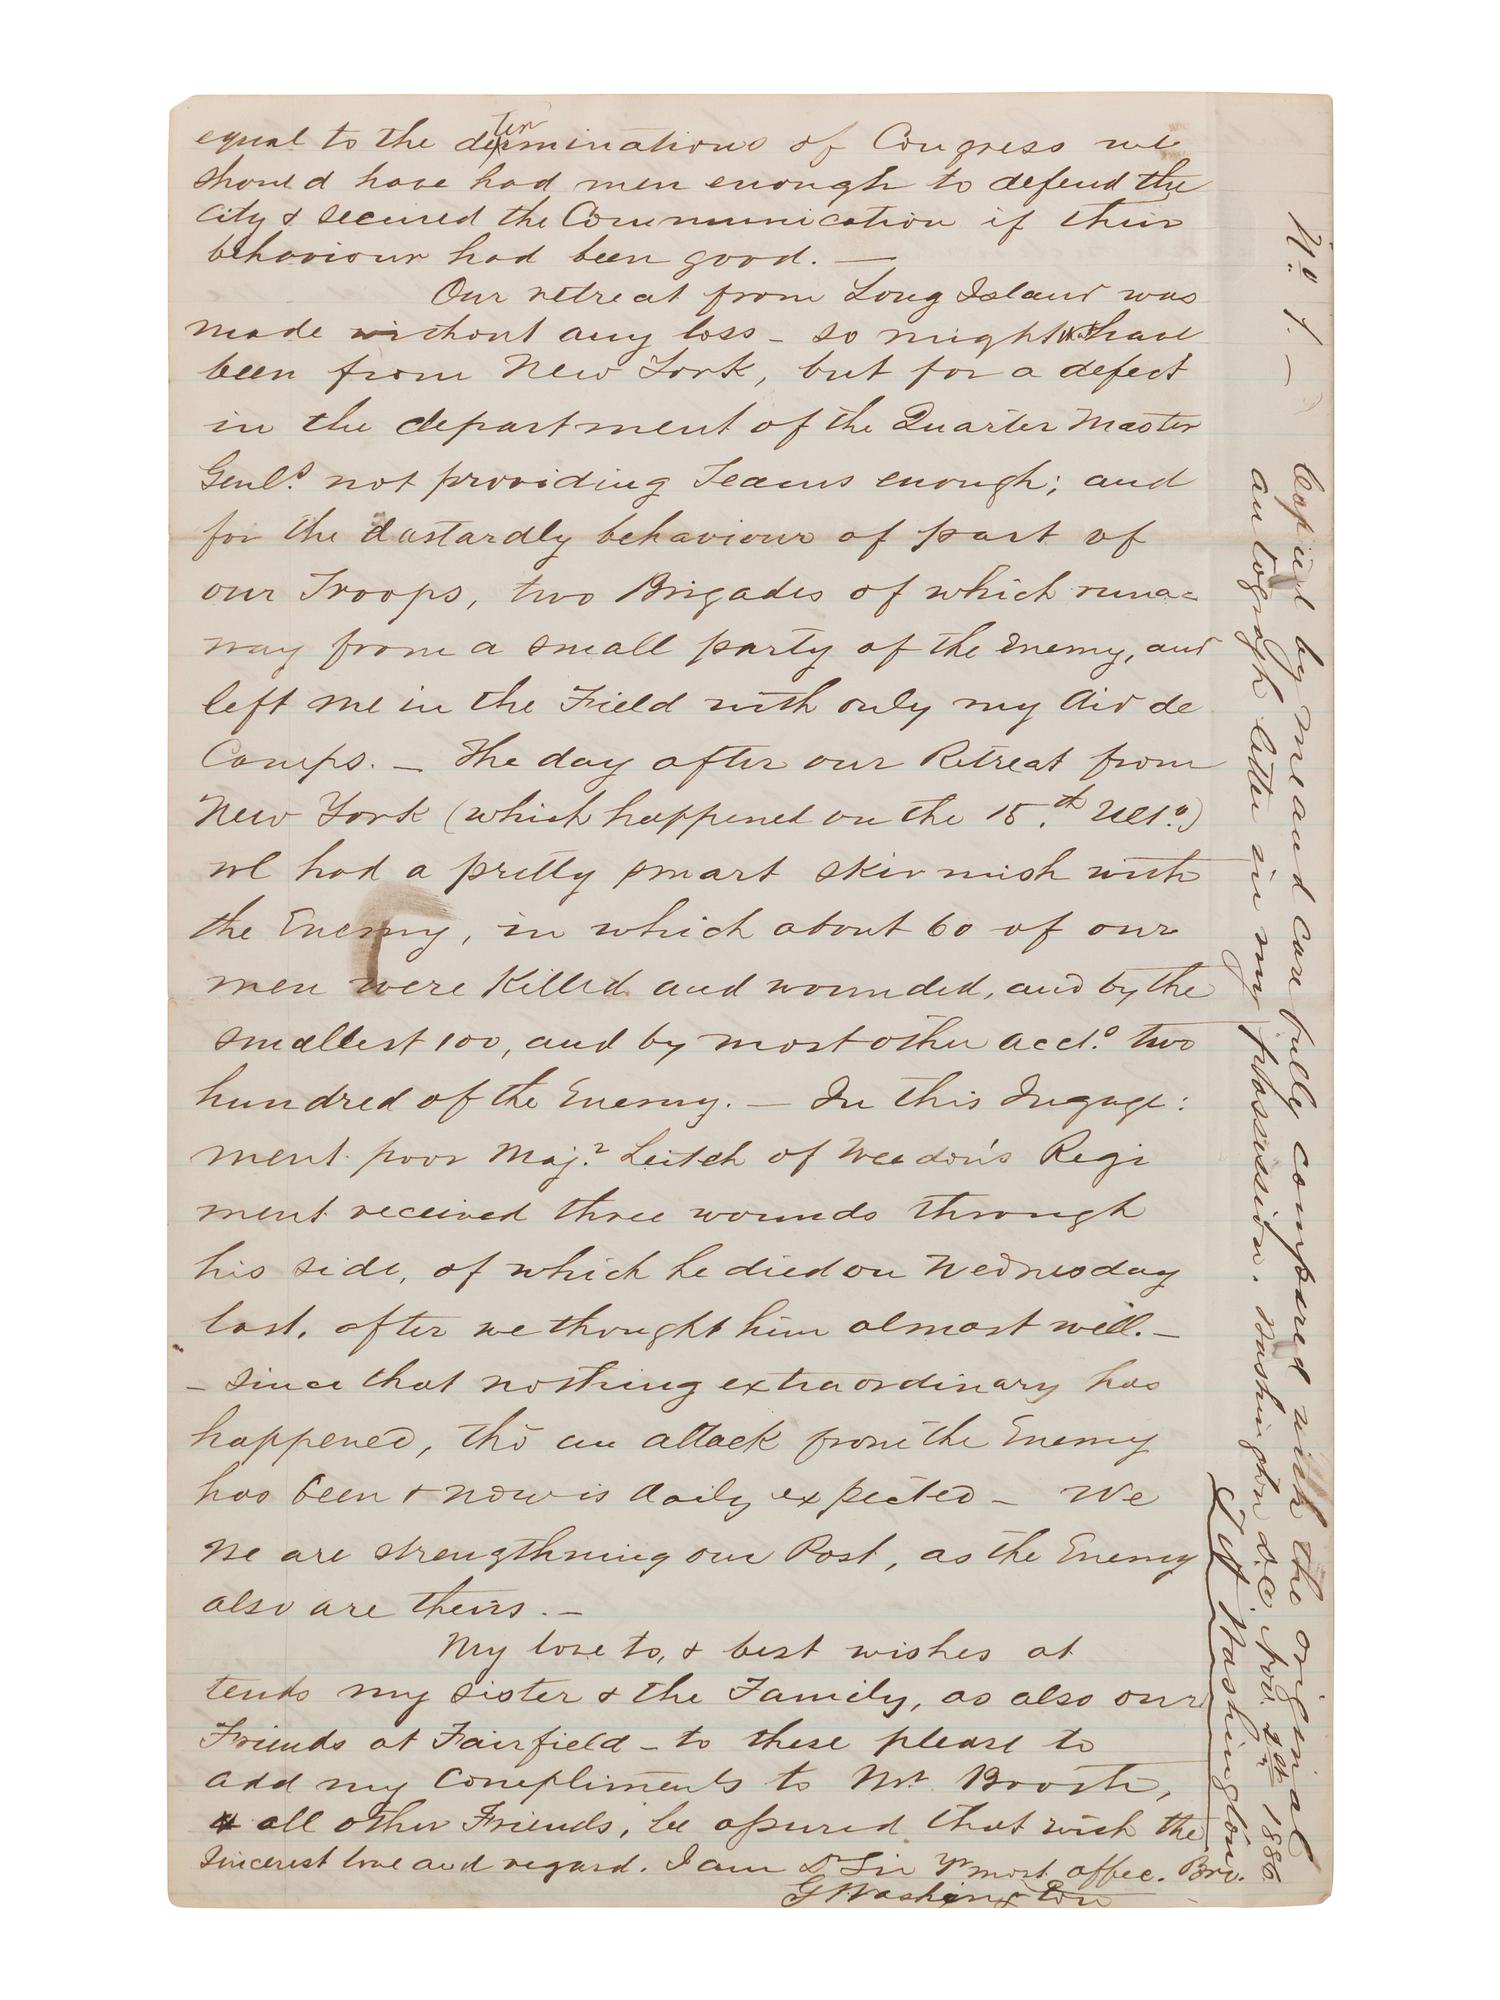 equal to the determinations of Congress we
should have had men enough to defend the
City & secured the Communication if their
behaviour had been good. —
Our retreat from Long Island was
made without any loss — so might that have
been from New York, but for a defect
in the department of the Quarter Master
Genls. not providing Teams enough; and
for the dastardly behaviour of part of
our Troops, two Brigades of which runa=
way from a small party of the Enemy, and
left me in the Field with only my Aid de
Camps. — The day after our Retreat from
New York (which happened on the 15.th Ulto.)
we had a pretty smart skirmish with
the Enemy, in which about 60 of our
men were Killed and wounded, and by the
smallest 100, and by most other acct.s two
hundred of the Enemy. — In this Ingage:
ment poor Maj.r Leitch of Weedon's Regi
ment received three wounds through
his side, of which he died on Wednesday
last, after we thought him almost well. —
— Since that nothing extraordinary has
happened, tho an attack from the Enemy
has been & now is daily expected — We
We are strengthning our Post, as the Enemy
also are theirs. —
My love to, & best wishes at
tends my Sister & the Family, as also our
Friends at Fairfield — to these please to
add my Compliments to Mr. Booth,
& all other Friends, be assured that with the
Sincerest love and regard. I am Dr Sir Yr most affec. Bro.
G Washington
No. 7. —
Copied by me and carefully compared with the original
autograph letter in my possession. Washington D.C. Nov. 2d 1886
Washington